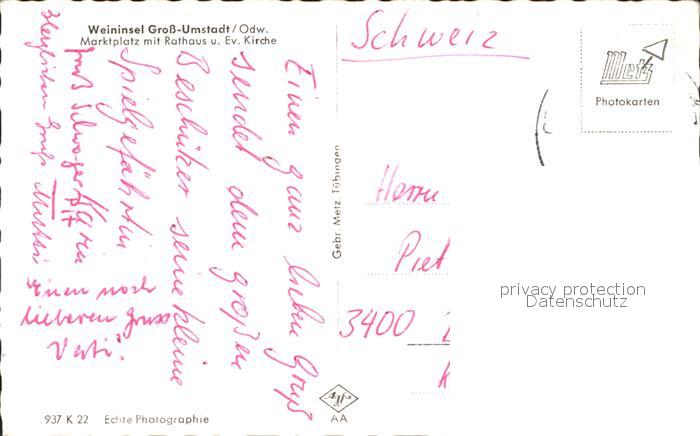 Weininsel Groß-Umstadt/Odw.
Marktplatz mit Rathaus u. Ev. Kirche
Einen ganz lieben Gruß
sendet dem großen
Beschützer seine kleine
Spielgefährtin
Karin
Gruß Schwager
Herzlichen Gruß Mutti
Einen noch
lieberen Gruss
Vati.
937 K 22 Echte Photographie
Gebr. Metz, Tübingen
AA
Schweiz
Metz
Photokarten
Herrn
Piet
3400
privacy protection
Datenschutz